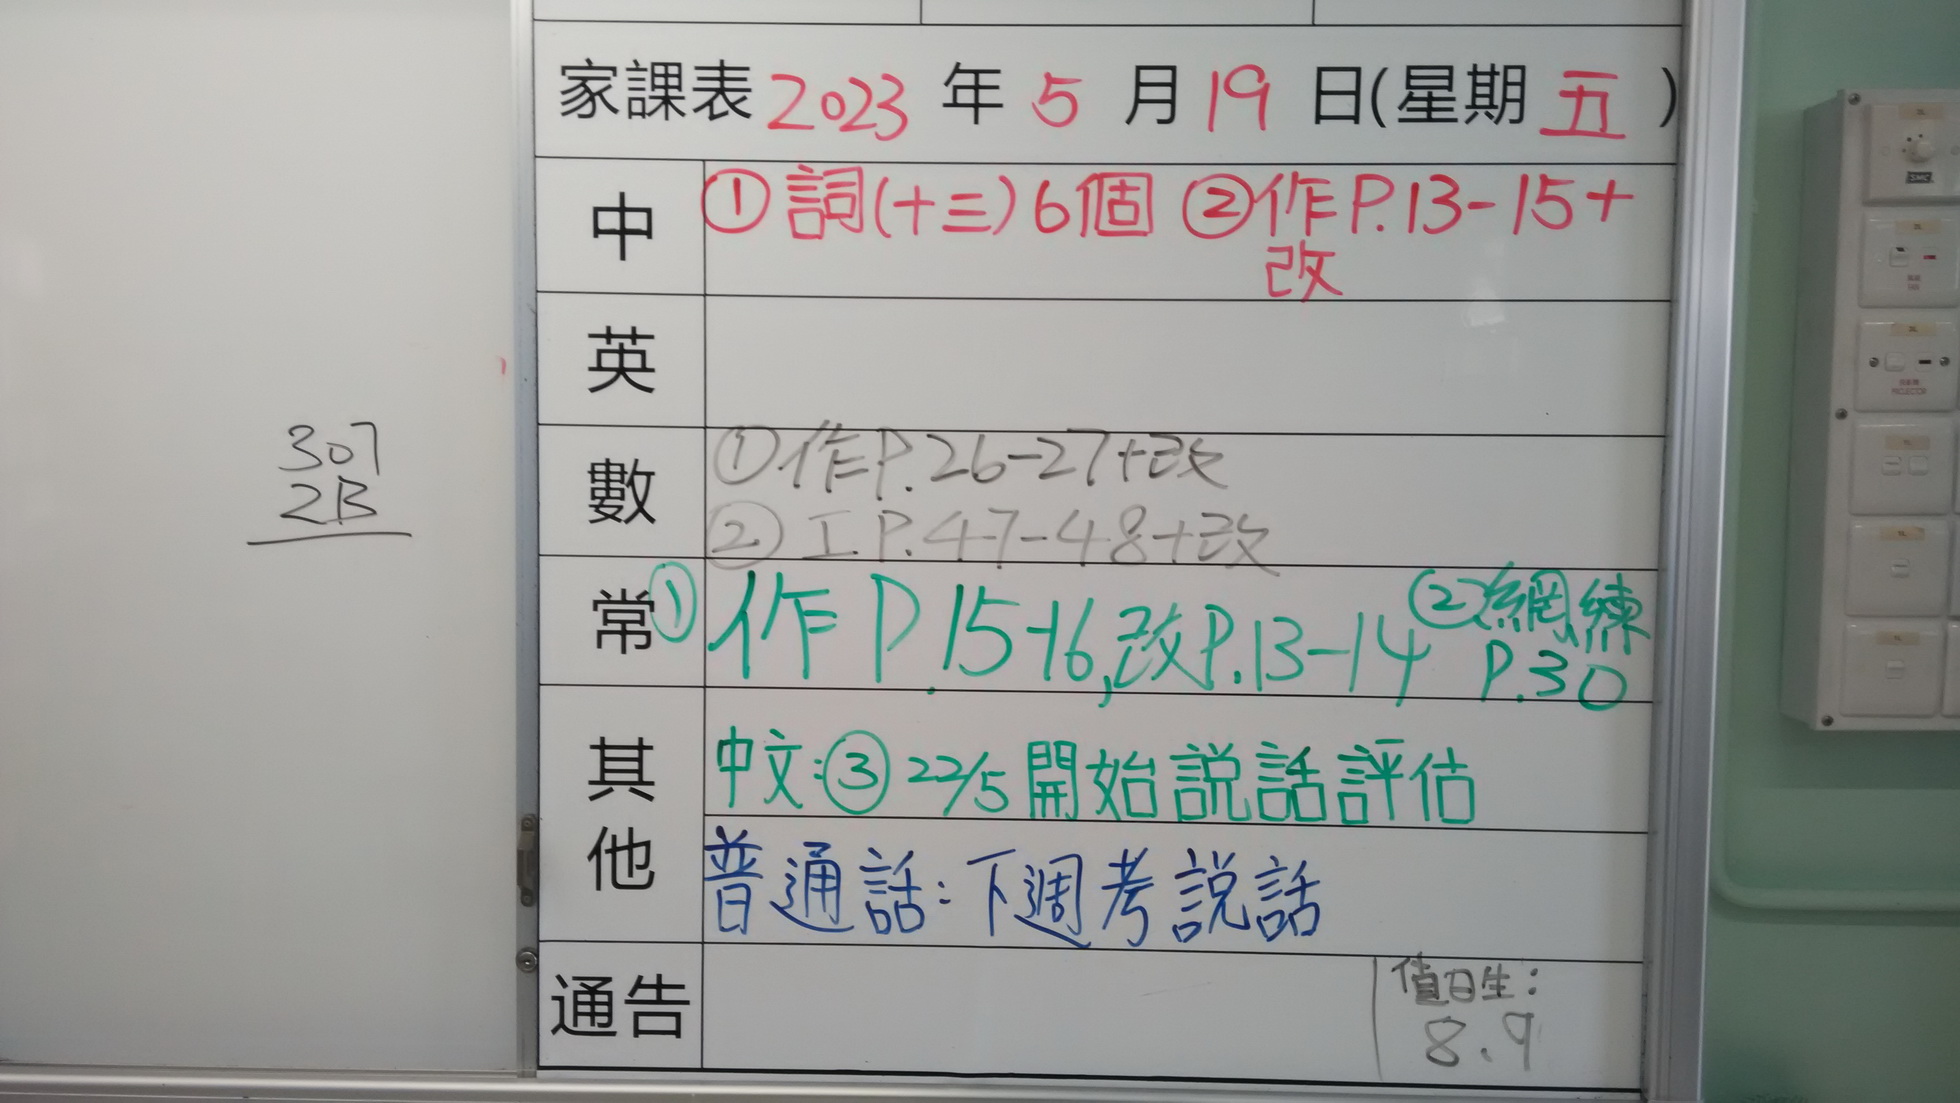 家課表 2023 年 5 月 19 日(星期 五 )
中 ① 詞(十三)6個 ②作P.13-15+
改
英
數 ①作P.26-27+改
②工.P.47-48+改
常 ① 作P.15-16,改P.13-14 ②網練
P.30
其他 中文:③ 22/5 開始說話評估
普通話:下週考說話
通告
值日生:
8.9
307
2B